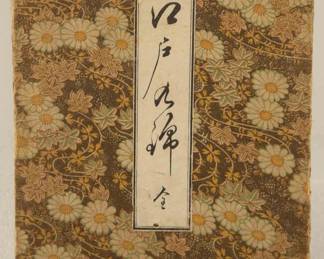 江戸乃錦 全